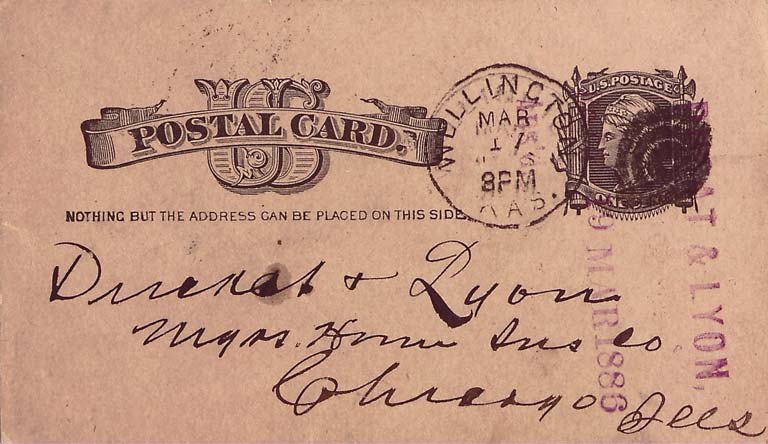 US
POSTAL CARD.
NOTHING BUT THE ADDRESS CAN BE PLACED ON THIS SIDE
WELLINGTON
MAR
17
8PM
KAS.
U.S. POSTAGE
& LYON,
9 MAR 1886
Ducat & Lyon
Mgrs. Home Ins Co
Chicago Ills